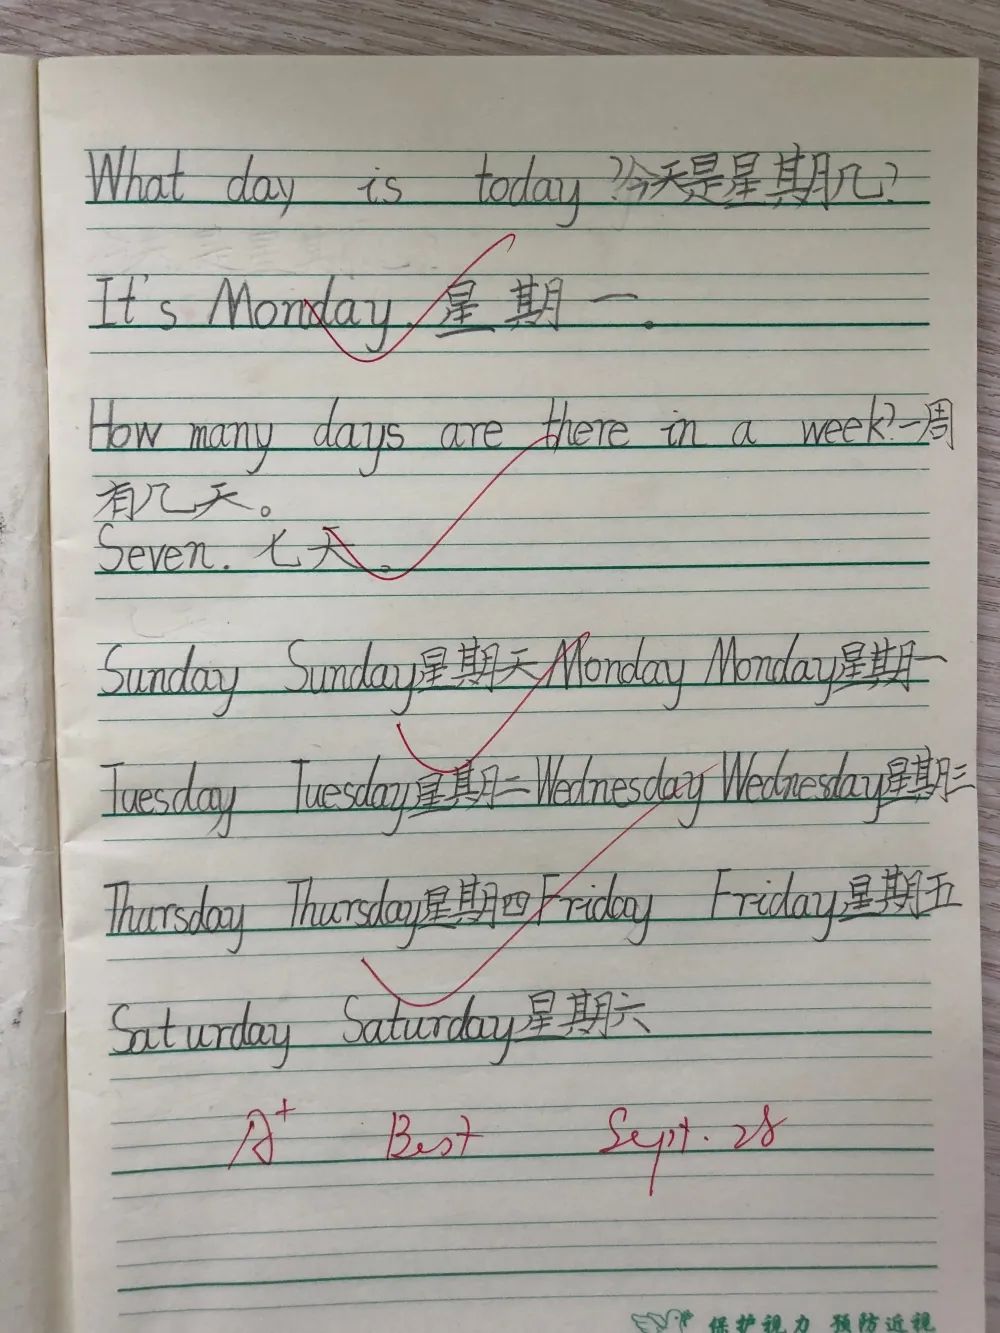 What day is today?今天是星期几?
It's Monday. 星期一.
How many days are there in a week?一周
有几天。
Seven. 七天.
Sunday Sunday星期天Monday Monday星期一
Tuesday Tuesday星期二Wednesday Wednesday星期三
Thursday Thursday星期四Friday Friday星期五
Saturday Saturday星期六
A+ Best Sept. 28
保护视力 预防近视